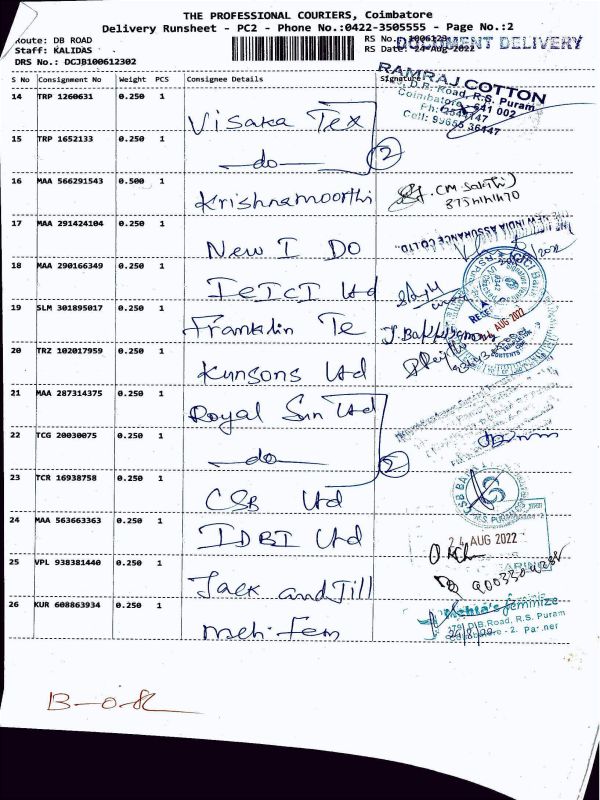 THE PROFESSIONAL COURIERS, Coimbatore
Delivery Runsheet - PC2 - Phone No.:0422-3505555 - Page No.:2
Route: DB ROAD
RS No.
DOCUMENT DELIVERY
Staff: KALIDAS
RS Date: 24-Aug-2022
DRS No.: DCJB100612302
S No Consignment No Weight PCS Consignee Details Signature
RAMRAJ COTTON
D.B. Road, R.S. Puram
Coimbatore - 641 002
14 TRP 1260631 0.250 1 Visaka Tex
15 TRP 1652133 0.250 1 —do— 2
16 MAA 566291543 0.500 1 Krishnamoorthi
17 MAA 291424104 0.250 1 New I DO
THE NEW INDIA ASSURANCE CO LTD.,
18 MAA 290166349 0.250 1 IcIcI Ltd
19 SLM 301895017 0.250 1 Franklin Te
AUG 2022
20 TRZ 102017959 0.250 1 Kunsons Ltd
21 MAA 287314375 0.250 1 Royal Sun Ltd
22 TCG 20030075 0.250 1 —do— 2
23 TCR 16938758 0.250 1 CSB Ltd
CSB BANK
R.S. PURAM
24 MAA 563663363 0.250 1 IDBI Ltd
24 AUG 2022
25 VPL 938381440 0.250 1 Jack and Jill
26 KUR 608863934 0.250 1 Meh-Fem
Mehta's feminize
D.B.Road, R.S. Puram
24/8/22